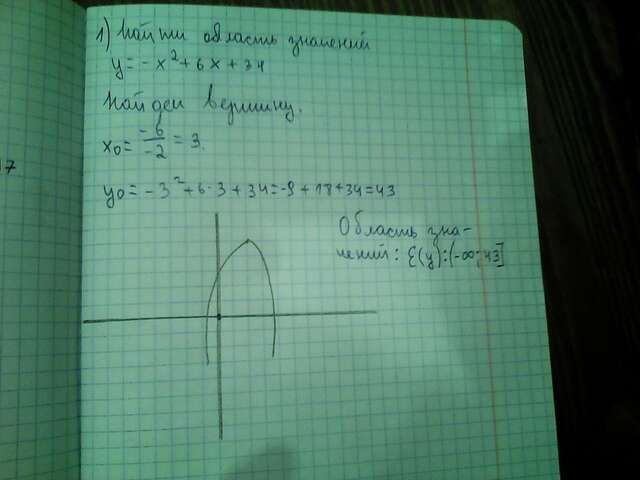 1) Найти область значений
y = - x² + 6x + 34
Найдем вершину.
x0 = -6/-2 = 3.
y0 = - 3² + 6·3 + 34 = -9 + 18 + 34 = 43
Область зна-
чений: E(y):(-∞; 43]
7